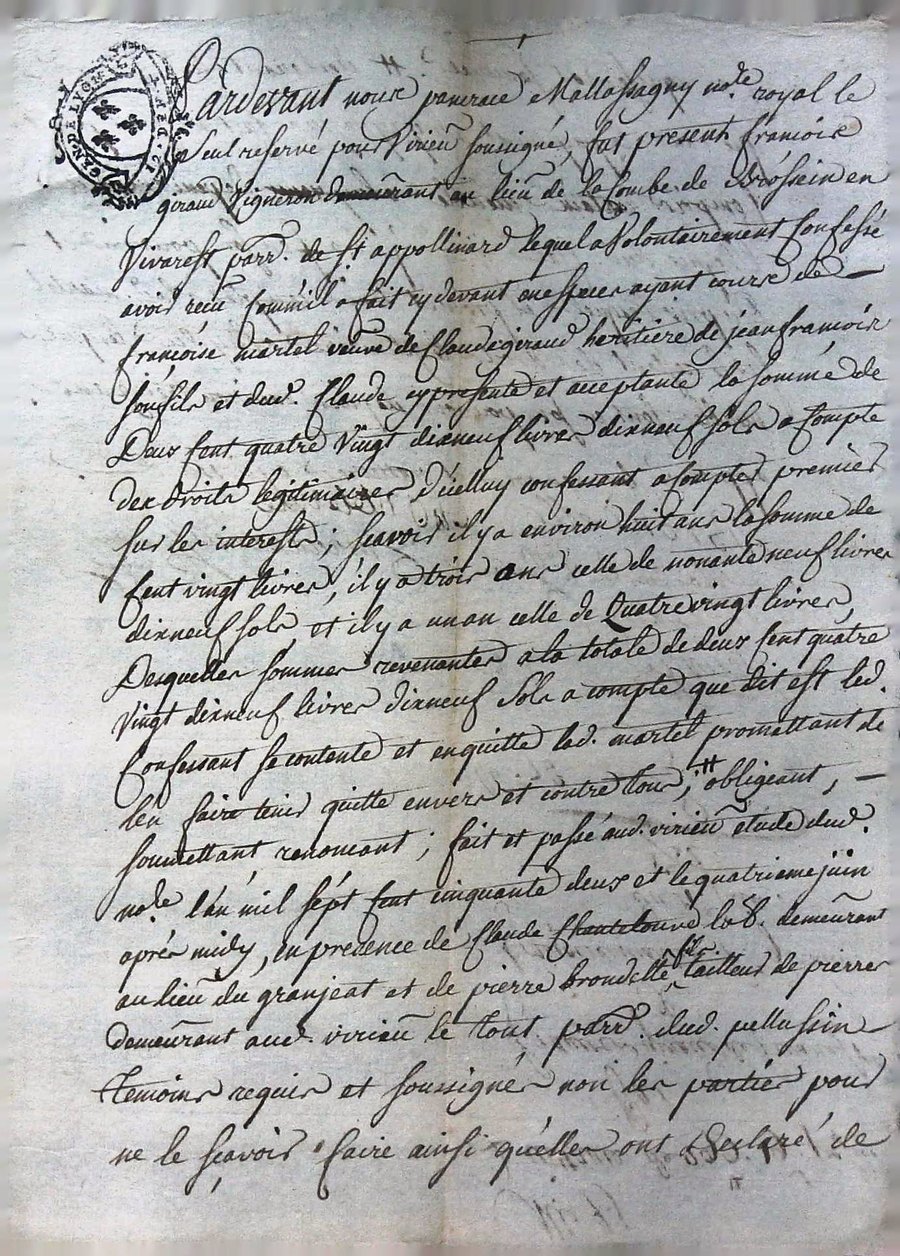 Pardevant nous pancrace Mallassagny no.re royal le
Seul reservé pour Virieu soussigné, fut present francois
giraud Vigneron demeurant au lieu de la Combe de Brossein en
Vivarest parr. de St appollinard lequel a Volontairement Confessé
avoir recu Comm'il a fait cy devant en especes ayant cours de —
francoise martel veuve de Claude giraud heritiere de jean francois
son fils et dud. Claude cy presente et acceptante la somme de
Deux Cent quatre Vingt dixneuf livres dixneuf sols a Compte
des droits legitimaires d'icelluy confessant a Comptes premier
sur les interests; scavoir il y a environ huit ans la somme de
Cent vingt livres, il y a trois ans celle de nonante neuf livres
dixneuf sols, et il y a un an celle de Quatre vingt livres,
Desquelles sommes revenantes a la totale de deux Cent quatre
Vingt dixneuf livres dixneuf sols a compte que dit est led.
Confessant se contente et en quitte lad. martel promettant de
l'en faire tenir quitte envers et contre tous, # obligeant, —
soumettant renoncant; fait et passé aud. virieu etude dud.
no.re l'an mil sept Cent cinquante deux et le quatrieme juin
aprés midy, en presence de Claude Chantelouve lab. demeurant
au lieu du granjeat et de pierre brondelle fils tailleur de pierres
demeurant aud. virieu le tout parr. dud. pellussin
temoins requis et soussignés non les parties pour
ne le scavoir faire ainsi qu'elles ont declaré de